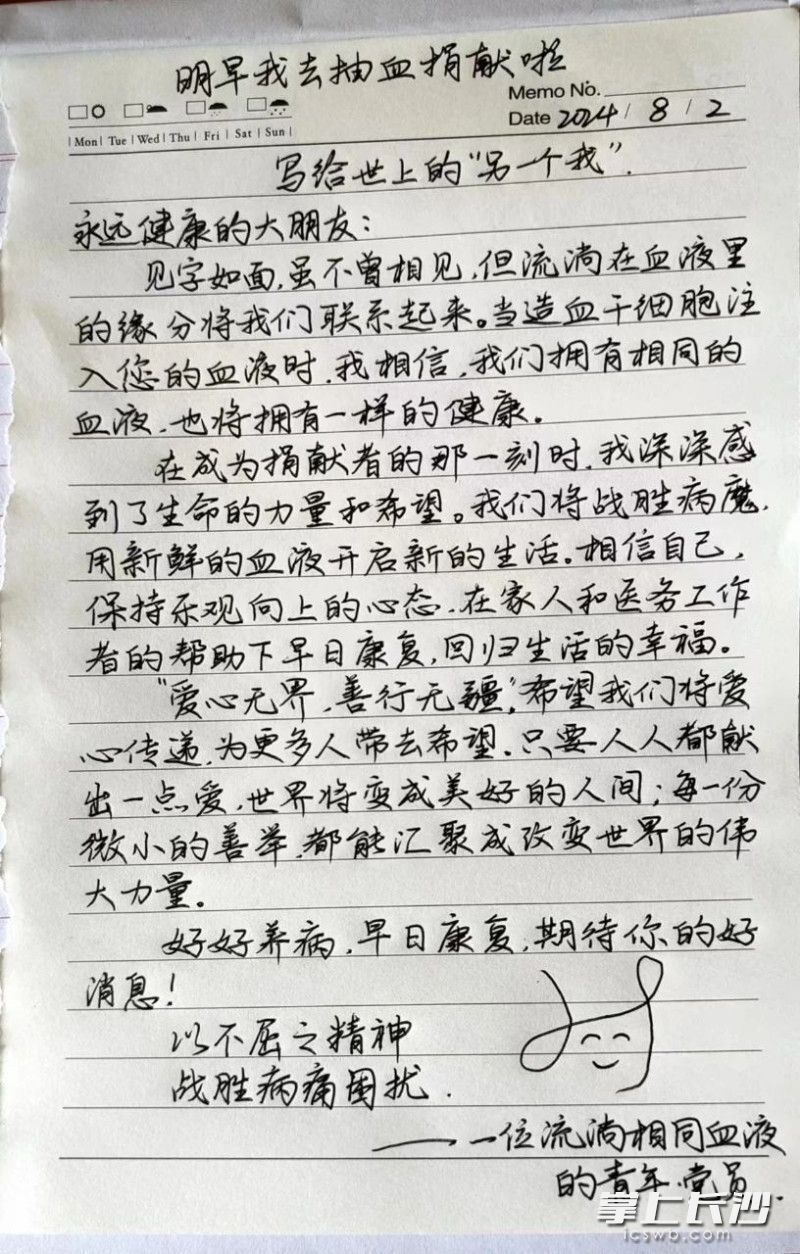 明早我去抽血捐献啦
Memo No.
Mon Tue Wed Thu Fri Sat Sun
Date 2024 / 8 / 2
写给世上的“另一个我”.
永远健康的大朋友：
见字如面,虽不曾相见,但流淌在血液里
的缘分将我们联系起来。当造血干细胞注
入您的血液时,我相信,我们拥有相同的
血液,也将拥有一样的健康。
在成为捐献者的那一刻时,我深深感
到了生命的力量和希望。我们将战胜病魔,
用新鲜的血液开启新的生活。相信自己,
保持乐观向上的心态,在家人和医务工作
者的帮助下早日康复,回归生活的幸福。
“爱心无界,善行无疆”,希望我们将爱
心传递,为更多人带去希望.只要人人都献
出一点爱,世界将变成美好的人间；每一份
微小的善举,都能汇聚成改变世界的伟
大力量。
好好养病,早日康复,期待你的好
消息!
以不屈之精神
战胜病痛困扰.
——一位流淌相同血液
的青年党员.
掌上长沙
icswb.com